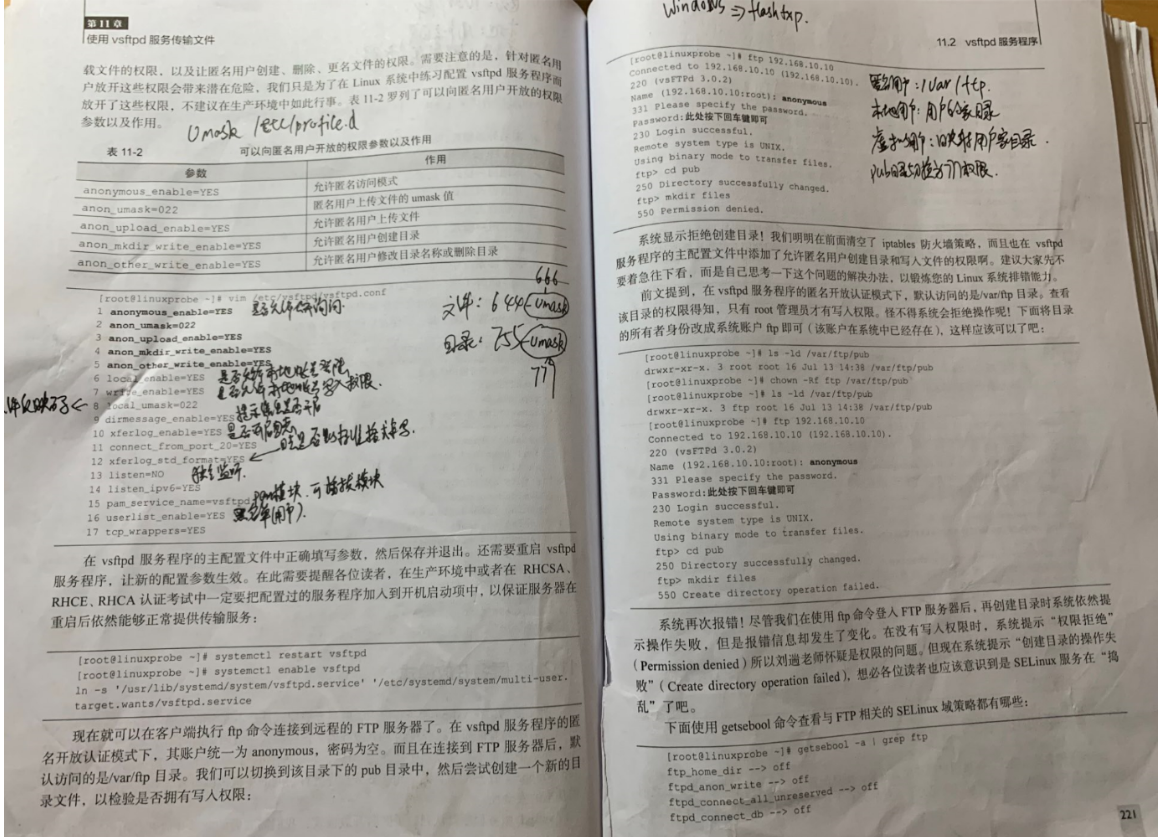 第 11 章
使用 vsftpd 服务传输文件
载文件的权限，以及让匿名用户创建、删除、更名文件的权限。需要注意的是，针对匿名用
户放开这些权限会带来潜在危险，我们只是为了在 Linux 系统中练习配置 vsftpd 服务程序而
放开了这些权限，不建议在生产环境中如此行事。表 11-2 罗列了可以向匿名用户开放的权限
参数以及作用。
Umask /etc/profile.d
表 11-2 可以向匿名用户开放的权限参数以及作用
参数 作用
anonymous_enable=YES 允许匿名访问模式
anon_umask=022 匿名用户上传文件的 umask 值
anon_upload_enable=YES 允许匿名用户上传文件
anon_mkdir_write_enable=YES 允许匿名用户创建目录
anon_other_write_enable=YES 允许匿名用户修改目录名称或删除目录
[root@linuxprobe ~]# vim /etc/vsftpd/vsftpd.conf
1 anonymous_enable=YES 是否允许匿名访问.
2 anon_umask=022
3 anon_upload_enable=YES
4 anon_mkdir_write_enable=YES
5 anon_other_write_enable=YES
6 local_enable=YES 是否允许本地账号登陆
7 write_enable=YES 是否允许本地账号写入权限.
8 local_umask=022
9 dirmessage_enable=YES 提示信息是否开启
10 xferlog_enable=YES 是否开启日志
11 connect_from_port_20=YES
12 xferlog_std_format=YES
13 listen=NO 独立监听.
14 listen_ipv6=YES
15 pam_service_name=vsftpd pam模块.可插拔模块
16 userlist_enable=YES 名单(用户).
17 tcp_wrappers=YES
666
文件: 644 Umask
目录: 755 Umask
777
在 vsftpd 服务程序的主配置文件中正确填写参数，然后保存并退出。还需要重启 vsftpd
服务程序，让新的配置参数生效。在此需要提醒各位读者，在生产环境中或者在 RHCSA、
RHCE、RHCA 认证考试中一定要把配置过的服务程序加入到开机启动项中，以保证服务器在
重启后依然能够正常提供传输服务：
[root@linuxprobe ~]# systemctl restart vsftpd
[root@linuxprobe ~]# systemctl enable vsftpd
ln -s '/usr/lib/systemd/system/vsftpd.service' '/etc/systemd/system/multi-user.
target.wants/vsftpd.service
现在就可以在客户端执行 ftp 命令连接到远程的 FTP 服务器了。在 vsftpd 服务程序的匿
名开放认证模式下，其账户统一为 anonymous，密码为空。而且在连接到 FTP 服务器后，默
认访问的是/var/ftp 目录。我们可以切换到该目录下的 pub 目录中，然后尝试创建一个新的目
录文件，以检验是否拥有写入权限：
Windows => flashfxp.
11.2 vsftpd 服务程序
[root@linuxprobe ~]# ftp 192.168.10.10
Connected to 192.168.10.10 (192.168.10.10).
220 (vsFTPd 3.0.2)
Name (192.168.10.10:root): anonymous
331 Please specify the password.
Password:此处按下回车键即可
230 Login successful.
Remote system type is UNIX.
Using binary mode to transfer files.
ftp> cd pub
250 Directory successfully changed.
ftp> mkdir files
550 Permission denied.
匿名用户: /var/ftp.
本地用户: 用户的家目录
虚拟用户: 映射用户家目录.
系统显示拒绝创建目录！我们明明在前面清空了 iptables 防火墙策略，而且也在 vsftpd
服务程序的主配置文件中添加了允许匿名用户创建目录和写入文件的权限啊。建议大家先不
要着急往下看，而是自己思考一下这个问题的解决办法，以锻炼您的 Linux 系统排错能力。
前文提到，在 vsftpd 服务程序的匿名开放认证模式下，默认访问的是/var/ftp 目录。查看
该目录的权限得知，只有 root 管理员才有写入权限。怪不得系统会拒绝操作呢！下面将目录
的所有者身份改成系统账户 ftp 即可（该账户在系统中已经存在），这样应该可以了吧：
[root@linuxprobe ~]# ls -ld /var/ftp/pub
drwxr-xr-x. 3 root root 16 Jul 13 14:38 /var/ftp/pub
[root@linuxprobe ~]# chown -Rf ftp /var/ftp/pub
[root@linuxprobe ~]# ls -ld /var/ftp/pub
drwxr-xr-x. 3 ftp root 16 Jul 13 14:38 /var/ftp/pub
[root@linuxprobe ~]# ftp 192.168.10.10
Connected to 192.168.10.10 (192.168.10.10).
220 (vsFTPd 3.0.2)
Name (192.168.10.10:root): anonymous
331 Please specify the password.
Password:此处按下回车键即可
230 Login successful.
Remote system type is UNIX.
Using binary mode to transfer files.
ftp> cd pub
250 Directory successfully changed.
ftp> mkdir files
550 Create directory operation failed.
系统再次报错！尽管我们在使用 ftp 命令登入 FTP 服务器后，再创建目录时系统依然提
示操作失败，但是报错信息却发生了变化。在没有写入权限时，系统提示“权限拒绝”
（Permission denied）所以刘遄老师怀疑是权限的问题。但现在系统提示“创建目录的操作失
败”（Create directory operation failed），想必各位读者也应该意识到是 SELinux 服务在“捣
乱”了吧。
下面使用 getsebool 命令查看与 FTP 相关的 SELinux 域策略都有哪些：
[root@linuxprobe ~]# getsebool -a | grep ftp
ftp_home_dir --> off
ftpd_anon_write --> off
ftpd_connect_all_unreserved --> off
ftpd_connect_db --> off
221